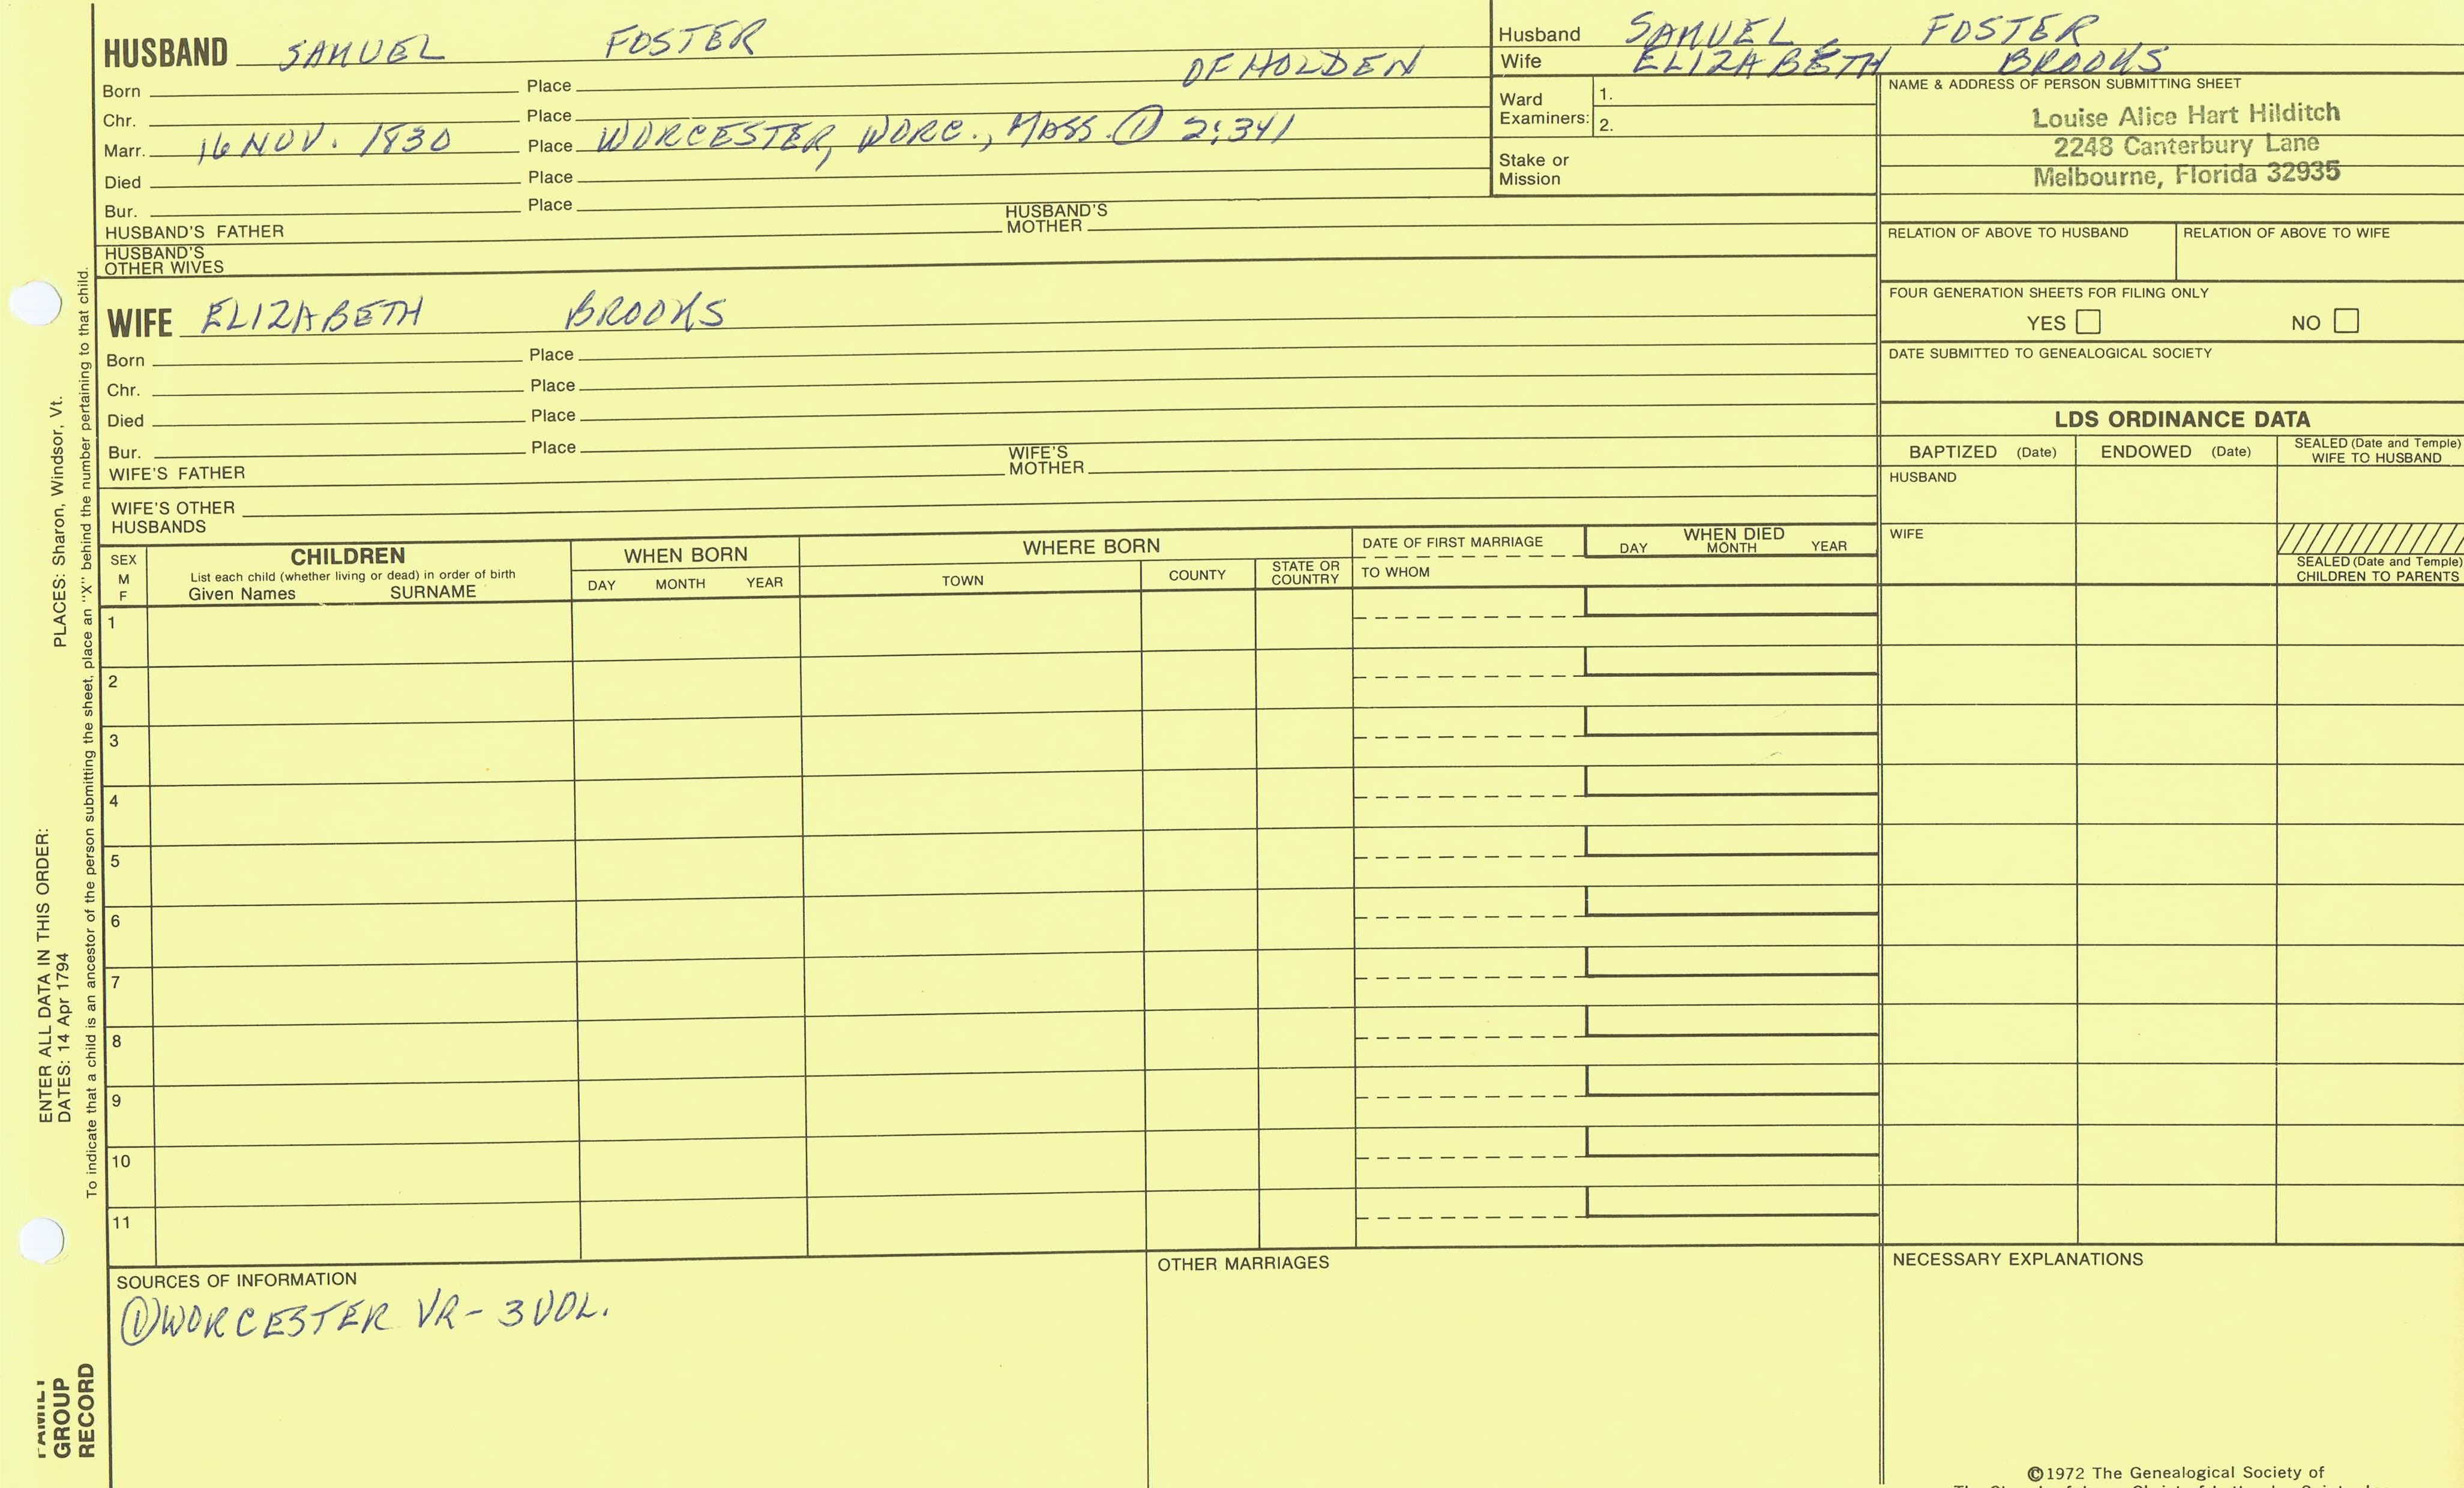 HUSBAND SAMUEL FOSTER
OF HOLDEN
Born Place
Chr. Place
Marr. 16 NOV. 1830 Place WORCESTER, WORC., MASS. ① 2:341
Died Place
Bur. Place
HUSBAND'S FATHER HUSBAND'S MOTHER
HUSBAND'S OTHER WIVES
Husband SAMUEL FOSTER
Wife ELIZABETH BROOKS
Ward Examiners: 1.
2.
Stake or Mission
NAME & ADDRESS OF PERSON SUBMITTING SHEET
Louise Alice Hart Hilditch
2248 Canterbury Lane
Melbourne, Florida 32935
RELATION OF ABOVE TO HUSBAND RELATION OF ABOVE TO WIFE
FOUR GENERATION SHEETS FOR FILING ONLY
YES NO
DATE SUBMITTED TO GENEALOGICAL SOCIETY
WIFE ELIZABETH BROOKS
Born Place
Chr. Place
Died Place
Bur. Place
WIFE'S FATHER WIFE'S MOTHER
WIFE'S OTHER HUSBANDS
LDS ORDINANCE DATA
BAPTIZED (Date) ENDOWED (Date) SEALED (Date and Temple) WIFE TO HUSBAND
HUSBAND
WIFE
SEALED (Date and Temple) CHILDREN TO PARENTS
SEX M F
CHILDREN
List each child (whether living or dead) in order of birth
Given Names SURNAME
WHEN BORN
DAY MONTH YEAR
WHERE BORN
TOWN COUNTY STATE OR COUNTRY
DATE OF FIRST MARRIAGE
TO WHOM
WHEN DIED
DAY MONTH YEAR
1
2
3
4
5
6
7
8
9
10
11
SOURCES OF INFORMATION
① WORCESTER VR - 3 VOL.
OTHER MARRIAGES
NECESSARY EXPLANATIONS
©1972 The Genealogical Society of
ENTER ALL DATA IN THIS ORDER:
DATES: 14 Apr 1794 PLACES: Sharon, Windsor, Vt.
To indicate that a child is an ancestor of the person submitting the sheet, place an "X" behind the number pertaining to that child.
FAMILY
GROUP
RECORD